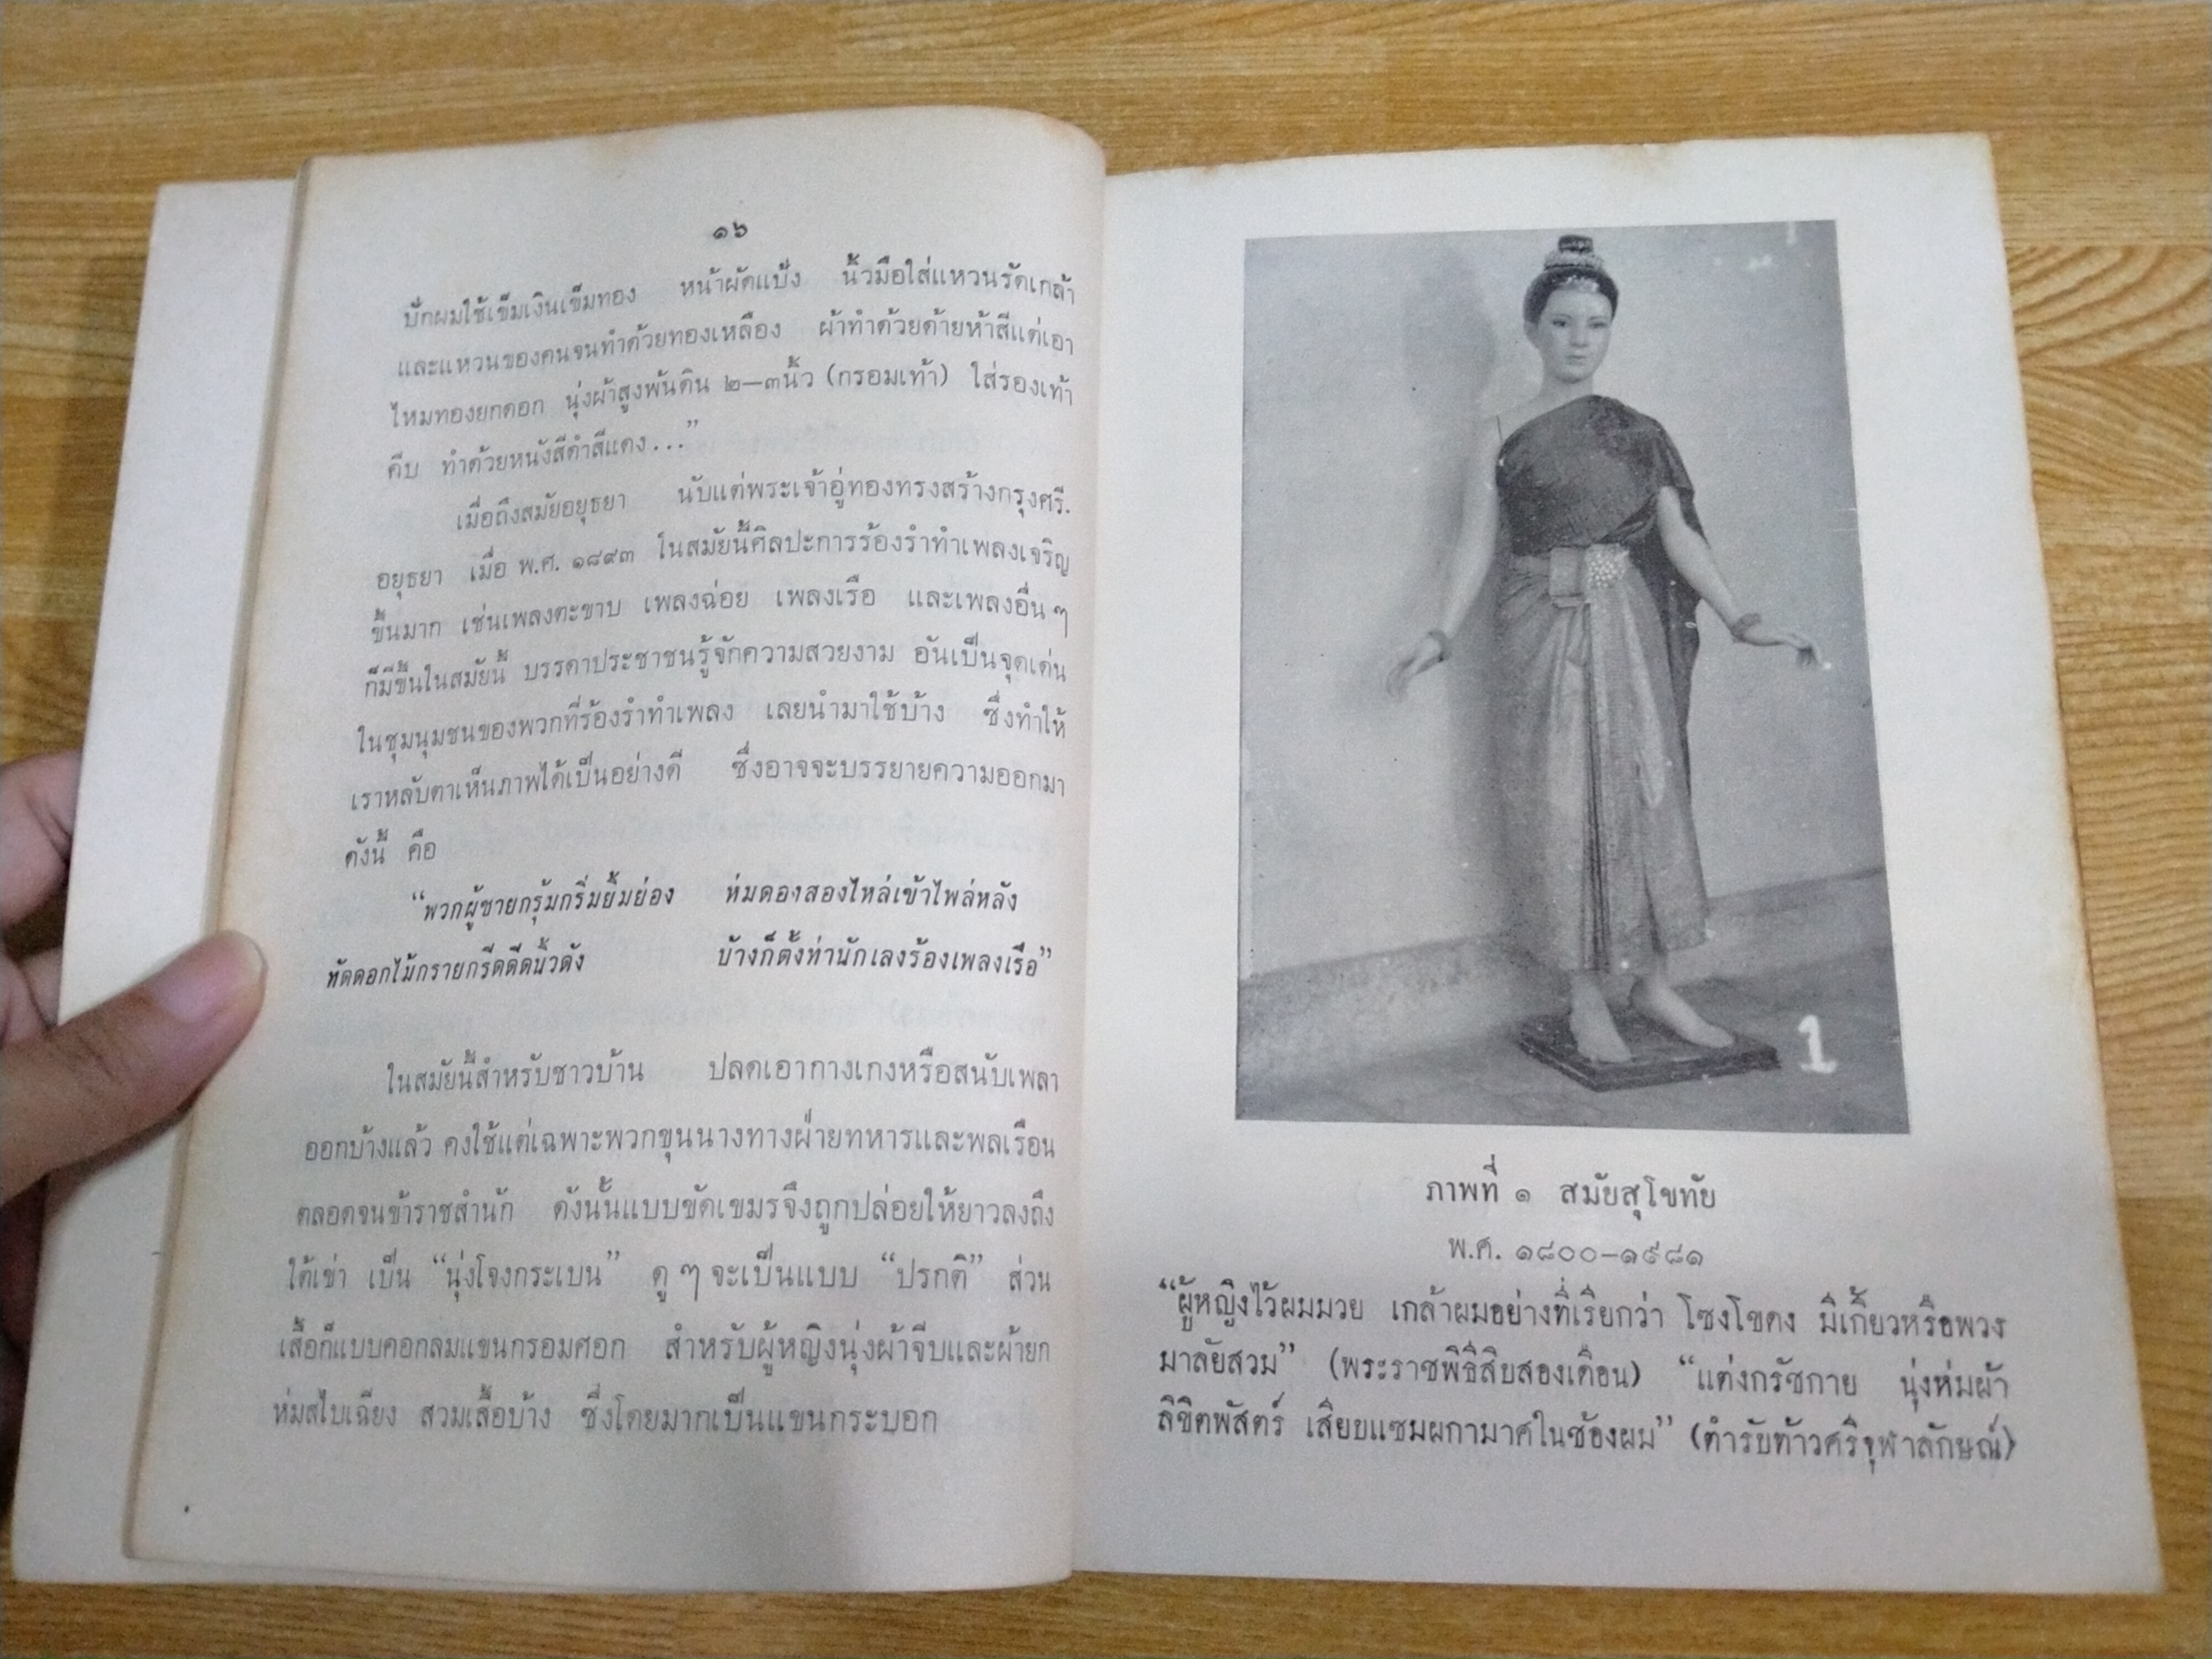 ๑๖
ปักผมใช้เข็มเงินเข็มทอง หน้าผัดแป้ง นิ้วมือใส่แหวนรัดเกล้า
และแหวนของคนจนทำด้วยทองเหลือง ผ้าทำด้วยด้ายห้าสีแต่เอา
ไหมทองยกดอก นุ่งผ้าสูงพ้นดิน ๒—๓นิ้ว (กรอมเท้า) ใส่รองเท้า
คีบ ทำด้วยหนังสีดำสีแดง...”
เมื่อถึงสมัยอยุธยา นับแต่พระเจ้าอู่ทองทรงสร้างกรุงศรี.
อยุธยา เมื่อ พ.ศ. ๑๘๙๓ ในสมัยนี้ศิลปะการร้องรำทำเพลงเจริญ
ขึ้นมาก เช่นเพลงตะขาบ เพลงฉ่อย เพลงเรือ และเพลงอื่น ๆ
ก็มีขึ้นในสมัยนี้ บรรดาประชาชนรู้จักความสวยงาม อันเป็นจุดเด่น
ในชุมนุมชนของพวกที่ร้องรำทำเพลง เลยนำมาใช้บ้าง ซึ่งทำให้
เราหลับตาเห็นภาพได้เป็นอย่างดี ซึ่งอาจจะบรรยายความออกมา
ดังนี้ คือ
“พวกผู้ชายกรุ้มกริ่มยิ้มย่อง ห่มดองสองไหล่เข้าไพล่หลัง
ทัดดอกไม้กรายกรีดดีดนิ้วดัง บ้างก็ตั้งท่านักเลงร้องเพลงเรือ”
ในสมัยนี้สำหรับชาวบ้าน ปลดเอากางเกงหรือสนับเพลา
ออกบ้างแล้ว คงใช้แต่เฉพาะพวกขุนนางทางฝ่ายทหารและพลเรือน
ตลอดจนข้าราชสำนัก ดังนั้นแบบขัดเขมรจึงถูกปล่อยให้ยาวลงถึง
ใต้เข่า เป็น “นุ่งโจงกระเบน” ดู ๆ จะเป็นแบบ “ปรกติ” ส่วน
เสื้อก็แบบคอกลมแขนกรอมศอก สำหรับผู้หญิงนุ่งผ้าจีบและผ้ายก
ห่มสไบเฉียง สวมเสื้อบ้าง ซึ่งโดยมากเป็นแขนกระบอก
1
ภาพที่ ๑ สมัยสุโขทัย
พ.ศ. ๑๘๐๐—๑๙๘๑
“ผู้หญิงไว้ผมมวย เกล้าผมอย่างที่เรียกว่า โซงโขดง มีเกี้ยวหรือพวง
มาลัยสวม” (พระราชพิธีสิบสองเดือน) “แต่งกรัชกาย นุ่งห่มผ้า
ลิขิตพัสตร์ เสียบแซมผกามาศในช้องผม” (ตำรับท้าวศรีจุฬาลักษณ์)